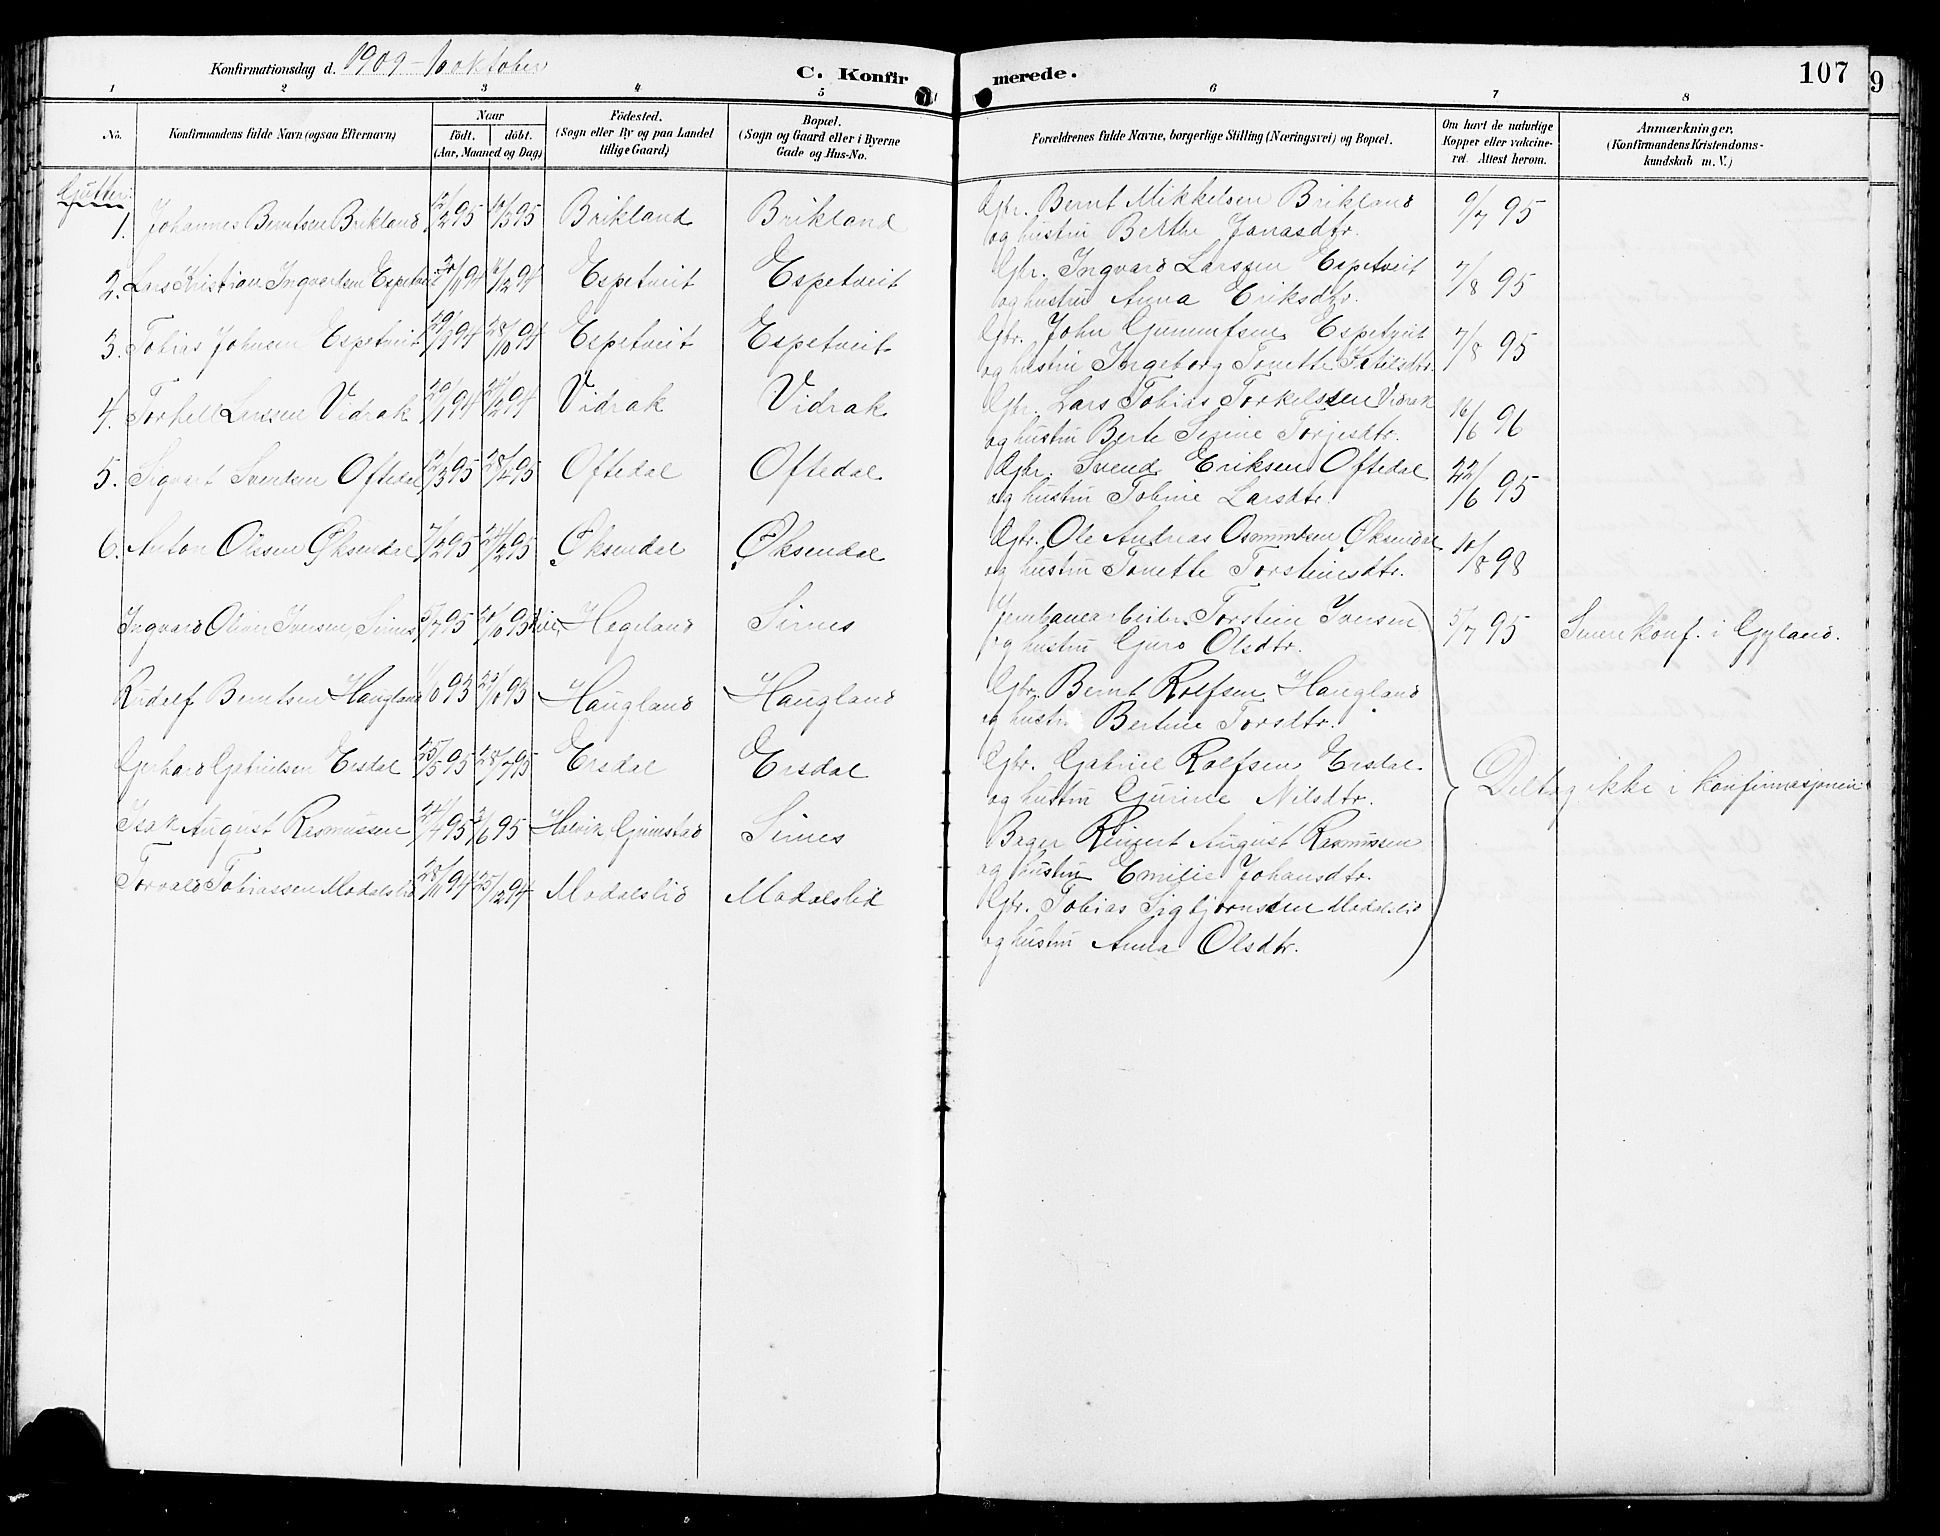 Konfirmationsdag d. 1909 - oktober
C. Konfirmerede.
107
9
1 2 3 4 5 6 7 8
No.
Konfirmandens fulde Navn (ogsaa Efternavn)
Naar
födt. döbt.
(Aar, Maaned og Dag)
Födested.
(Sogn eller By og paa Landet
tillige Gaard)
Bopæl.
(Sogn og Gaard eller i Byerne
Gade og Hus-No.
Forældrenes fulde Navne, borgerlige Stilling (Næringsvei) og Bopæl.
Om havt de naturlige
Kopper eller vakcine-
ret. Attest herom.
Anmærkninger,
(Konfirmandens Kristendoms-
kundskab m. V.)
Gutter:
1. Johannes Berntsen Brikland 12/2 95 /3 95 Brikland Brikland Gbr. Bernt Mikkelsen Brikland 9/7 95
og hustru Berthe Jonasdtr.
2. Lars Kristian Ingvardsen Espetveit 94 /12 94 Espetveit Espetveit Gbr. Ingvard Larssen Espetveit 7/8 95
og hustru Anna Eriksdtr.
3. Tobias Johnsen Espetveit 29/9 94 28/10 94 Espetveit Espetveit Gbr. John Gunnufsen Espetveit 7/8 95
og hustru Ingeborg Tonette Ketilsdtr.
4. Torkell Larssen Vidrak 20/1 94 /2 94 Vidrak Vidrak Gbr. Lars Tobias Torkelssen Vidrak 16/6 96
og hustru Berte Serine Torjesdtr.
5. Sigvart Svendsen Oftedal 12/3 95 28/4 95 Oftedal Oftedal Gbr. Svend Eriksen Oftedal 22/6 95
og hustru Tobine Larsdtr.
6. Anton Olssen Øksendal 7/2 95 24/2 95 Øksendal Øksendal Gbr. Ole Andreas Osmundsen Øksendal 10/8 98
og hustru Tonette Torsteinsdtr.
Ingvard Oliver Iversen Sirnes 5/7 95 95 Hegeland Sirnes Jernbanearbeider Torstein Iversen 5/7 95 Senere konf. i Gyland.
og hustru Guro Olsdtr.
Rudolf Berntsen Haugland 93 93 Haugland Haugland Gbr. Bernt Rolfsen Haugland
og hustru Bertine Torsdtr.
Gerhard Gabrielsen Ersdal 25/5 95 28/7 95 Ersdal Ersdal Gbr. Gabriel Rolfsen Ersdal
og hustru Gurine Nilsdtr. Deltog ikke i konfirmasjonen
Isak August Rasmussen 24/4 95 3/6 95 Grimstad Sirnes Bager Reinert August Rasmussen
og hustru Emilie Johansdtr.
Torvald Tobiassen Modalslid 28/11 94 25/12 94 Modalslid Modalslid Gbr. Tobias Sigbjørnssen Modalslid
og hustru Anna Olsdtr.